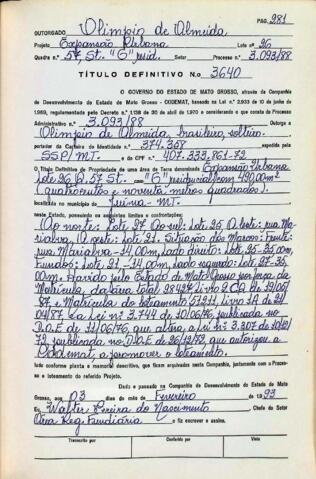 PÁG. 281
OUTORGADO, Olimpio de Almeida
Projeto Expansão Urbana Lote nº 26
Quadra nº 57, St. "G" juíd. Setor Processo nº 3.093/88
TÍTULO DEFINITIVO Nº 3640
O GOVERNO DO ESTADO DE MATO GROSSO, através da Companhia
de Desenvolvimento do Estado de Mato Grosso - CODEMAT, baseado na Lei nº 2.933 de 10 de junho
de 1969, regulamentada pelo Decreto n.º 1.138 de 30 de abril de 1970 e considerando o que consta do Processo
Administrativo nº 3.093/88 Outorga a
Olimpio de Almeida, brasileiro, solteiro,
portador da Carteira de Identidade nº 374.358 expedida por
SSP/MT. e do CPF nº 407.333.861-72
O Título Definitivo de Propriedade de uma área de Terra denominada Expansão Urbana
Lote 26, Q. 57, St. "G" com 490,00m²
(quatrocentos e noventa metros quadrados).
localizada no município de Juína - MT.
neste Estado, possuindo os seguintes limites e confrontações:
Ao norte: Lote 27. Ao sul: Lote 25. A leste: rua
Marialva. A oeste: Lote 21. Situação dos Marcos: Frente:
rua Marialva - 14,00m, Lado direito: Lote 25 - 35,00m,
Fundos: Lote 21 - 14,00m, Lado esquerdo: Lote 27 - 35,
00m. Havido pelo Estado de Mato Grosso por força da
Matrícula, da área total 28427 Livro 2
87, e Matrícula do loteamento 51211, Livro 1A de 21
04/87 e a Lei nº 3.744 de 10/06/76, publicada no
D.O.E de 11/06/76 que altera a Lei nº 3.307 de
72, publicada no D.O.E de 26/12/72 que autorizou a
Codemat, a promover o loteamento.
tudo conforme planta e memorial descritivo, que ficam arquivados nesta Companhia, juntamente com o Processo
e loteamento do referido Projeto.
Dado e passado na Companhia de Desenvolvimento do Estado de Mato
Grosso, aos 03 dias do mês de Fevereiro de 1993
Eu, Walter Pereira do Nascimento Chefe do Setor
Área Reg. Fundiária o fiz escrever e assino.
Transcrito por
Conferido por
Visto